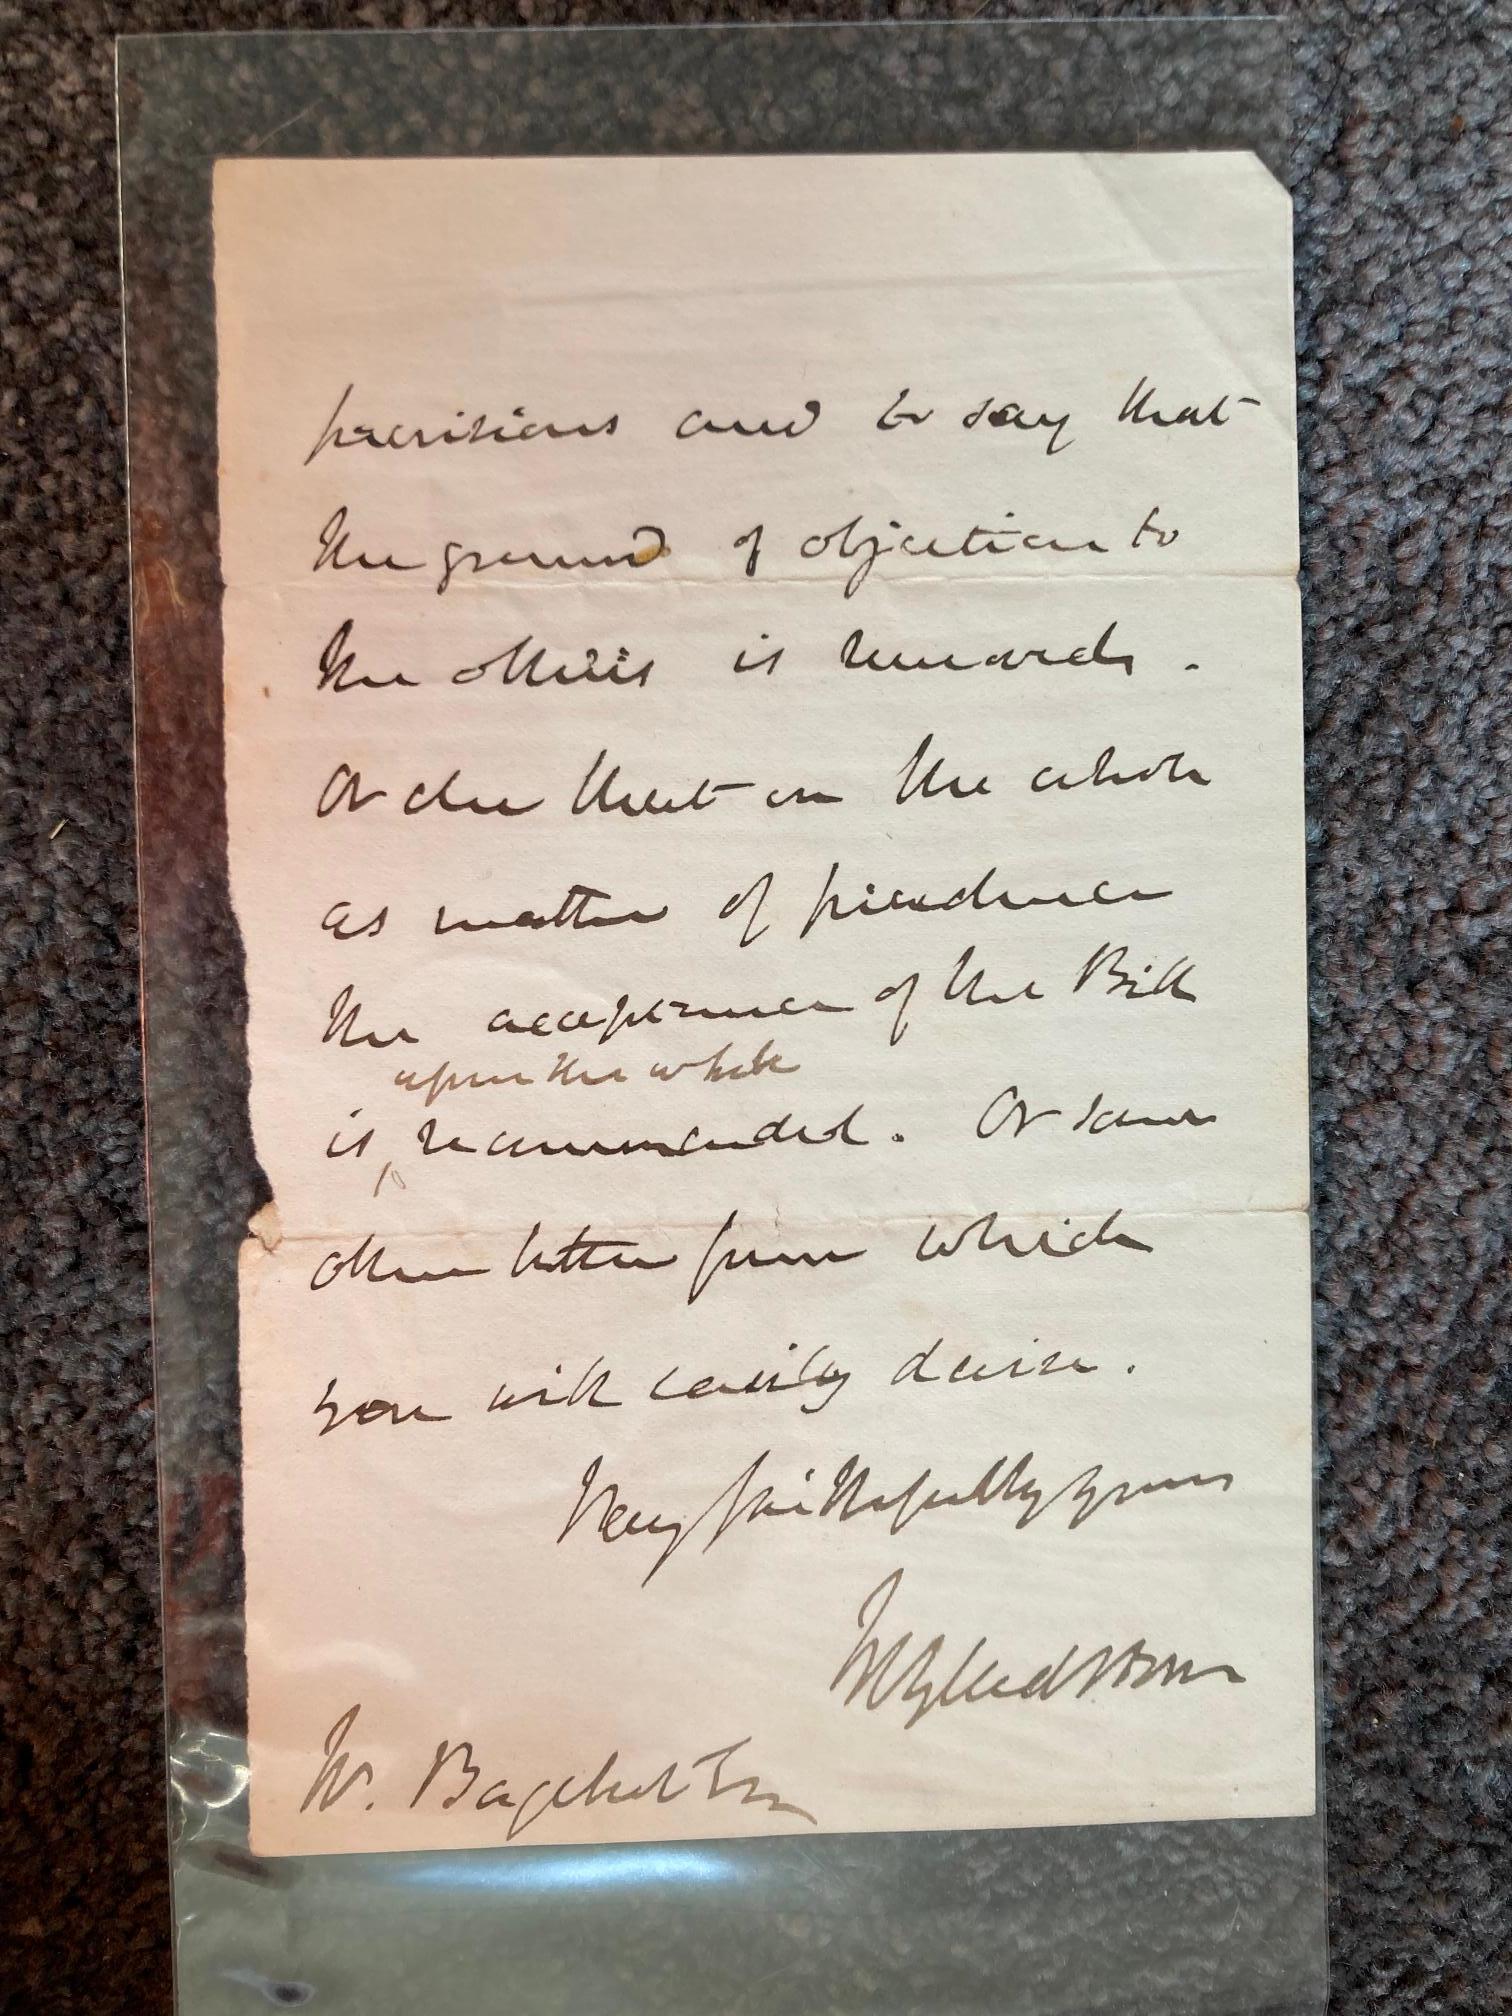 provisions and to say that
the ground of objection to
the others is removed.
Or else that on the whole
as matter of prudence
the acceptance of the Bill
upon the whole
is recommended. Or some
other better form which
you will easily devise.
Very faithfully yours
WEGladstone
W. Bagehot Esq